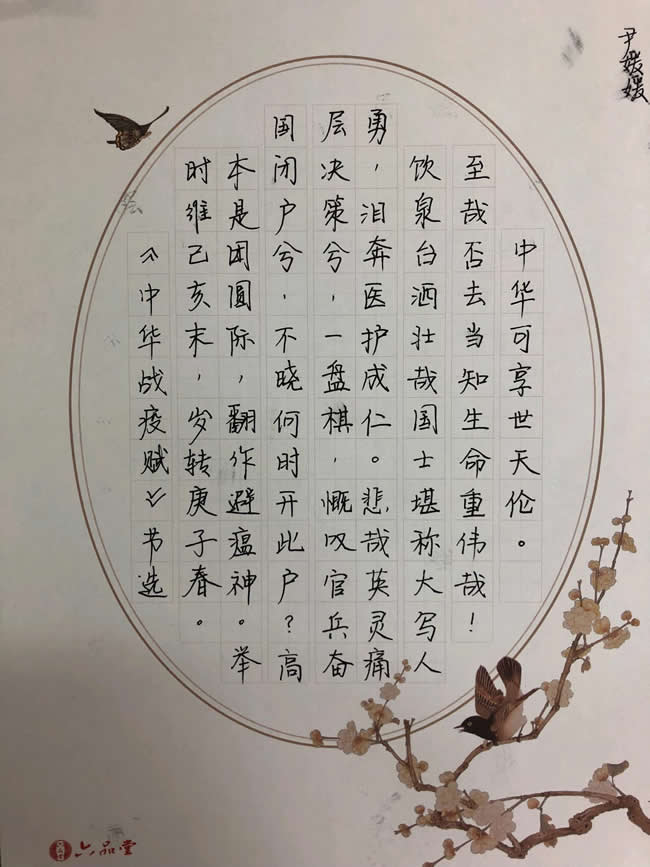 《中华战疫赋》节选
时维己亥末,岁转庚子春。
本是团圆际,翻作避瘟神。举
国闭户兮,不晓何时开此户?高
层决策兮,一盘棋,慨叹官兵奋
勇,泪奔医护成仁。悲哉英灵痛
饮泉台洒壮哉国士堪称大写人
至哉否去当知生命重伟哉!
中华可享世天伦。
尹媛媛
六品堂